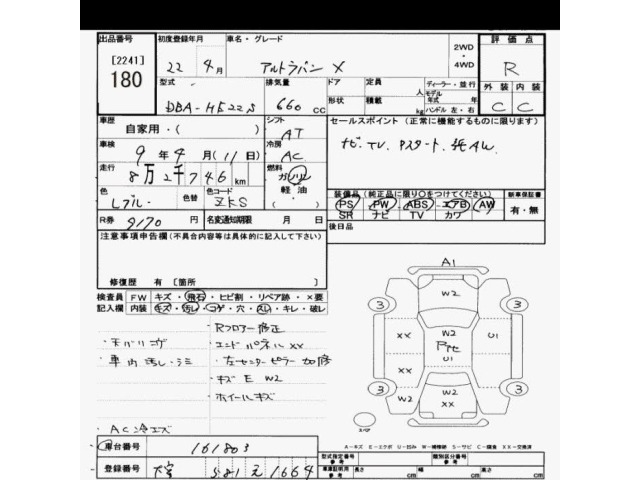 出品番号 初度登録年月 車名・グレード 評価点
[2241] 180
22 年 4 月 アルトラパン X 2WD・4WD R
型式 排気量 ドア 定員 人 ディーラー・並行 外装 内装
DBA-HE22S 660 CC 形状 積載 kg モデル年式 年 ハンドル 左・右 C C
車歴 シフト セールスポイント(正常に機能するものに限ります)
自家用・( ) AT
車検 冷房
9 年 4 月(11 日) AC ナビ.TV.Pスタート.純AW.
走行 燃料
8 万 2 千 746 km ガソリン 軽油
色 色替 色コード ・( ) 装備品(純正品に限り○をつけてください) 新車保証書
Lブルー ZKS PS PW ABS エアB AW 有・無
SR ナビ TV カワ
R券 9170 円 名変通知期限 月 日 後日品
注意事項申告欄(不具合内容等は具体的に記入して下さい)
修復歴 有[箇所 ]
検査員 FW キズ・飛石・ヒビ割・リペア跡・×要
記入欄 内装 キズ・汚レ・コゲ・穴・スレ・キレ・破レ
・Rフロアー修正
・天バリコゲ ・エンドパネルXX
・車内汚レ・シミ ・左センターピラー
・キズ E W2
・ホイールキズ
・AC冷エズ
A1
W2
3 3
XX W2 U1
U1
3 3
W2 W2 XX
スペア
A-キズ E-エクボ U-凹み W-補修跡 S-サビ C-腐食 XX-交換済
車台番号 161803
登録番号 581 え 1664
型式指定番号 参考 類別区分番号 参考
車庫証明用 参考 長さ cm 幅 cm 高さ cm